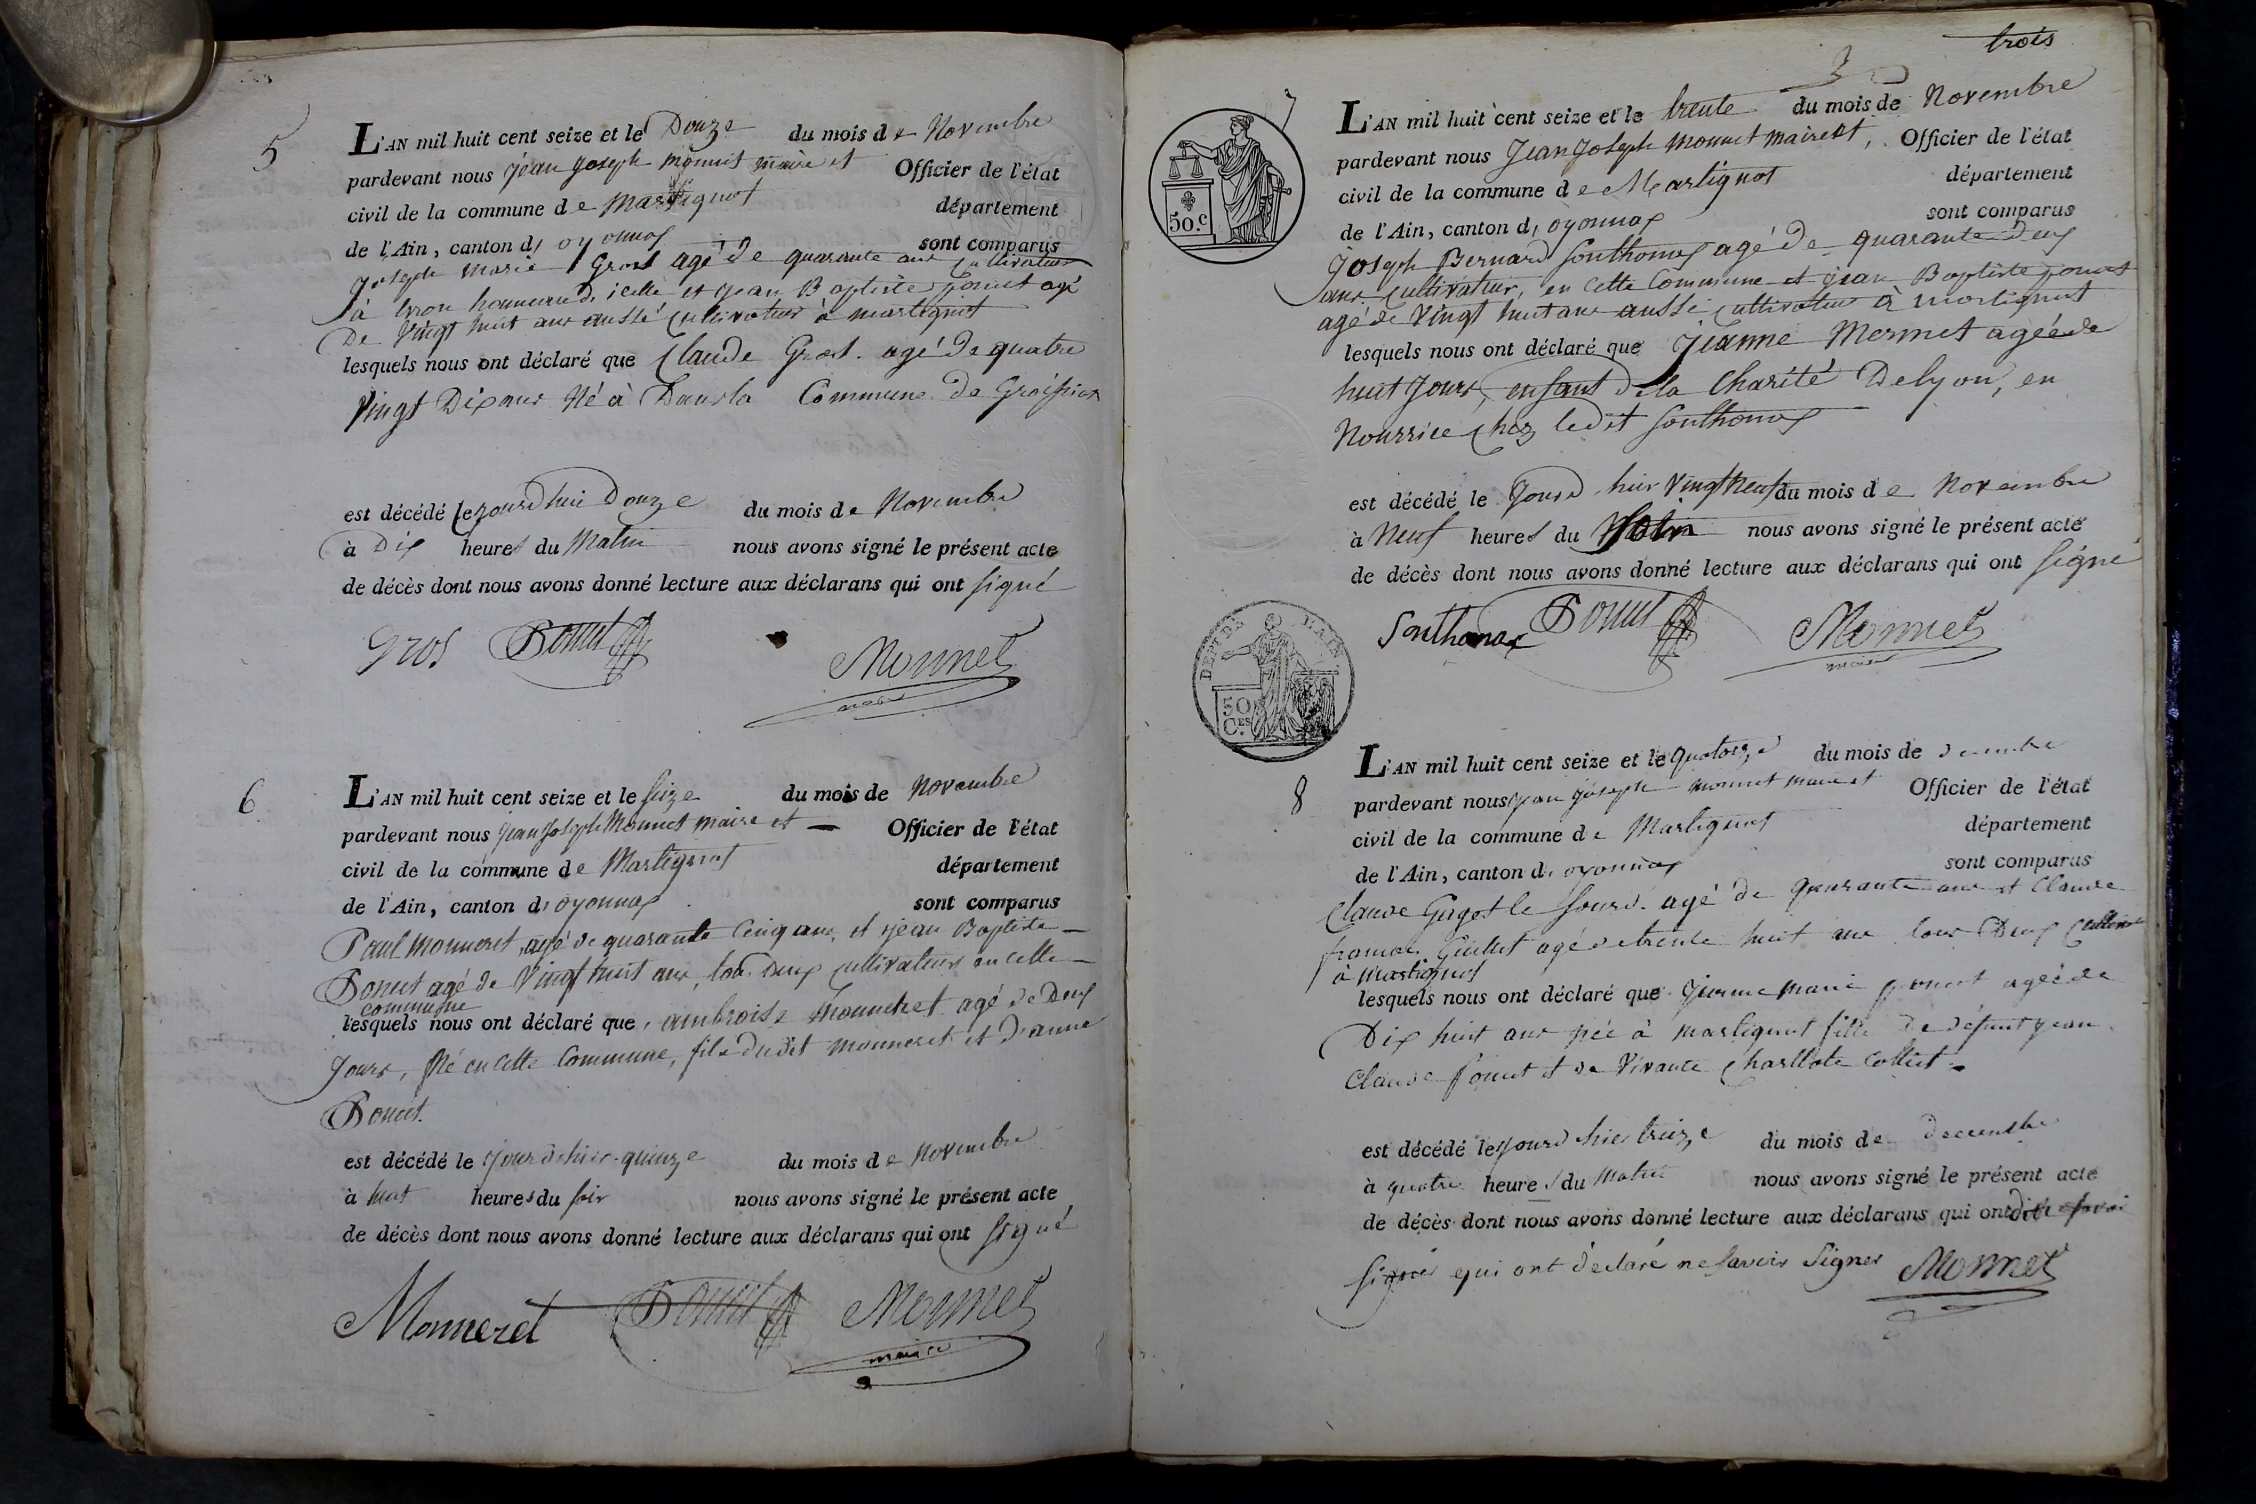 5
L'AN mil huit cent seize et le Douze du mois de Novembre
pardevant nous jean joseph monnet maire et Officier de l'état
civil de la commune de Martignat département
de l'Ain, canton d'oyonnax sont comparus
joseph marie Gros agé de quarante ans cultivateur
à et jean Baptiste poncet agé
De Vingt huit ans aussi cultivateur à martignat
lesquels nous ont déclaré que Claude Gros agé de quatre
Vingt Dix ans Né à Commune de Groissiat
est décédé le jourd'hui Douze du mois de Novembre
à Dix heures du Matin nous avons signé le présent acte
de décès dont nous avons donné lecture aux déclarans qui ont signé
Gros Poncet Monnet
maire
6
L'AN mil huit cent seize et le seize du mois de Novembre
pardevant nous jean joseph Monnet maire et Officier de l'état
civil de la commune de Martignat département
de l'Ain, canton d'oyonnax sont comparus
Paul Monneret agé de quarante cinq ans, et jean Baptiste
Poncet agé de Vingt huit ans, tous deux cultivateurs en cette
commune
lesquels nous ont déclaré que ambroise Monneret agé de Deux
Jours, Né en cette Commune, fils dudit monneret et d'anne
Poncet.
est décédé le jour d'hier quinze du mois de Novembre
à huit heures du soir nous avons signé le présent acte
de décès dont nous avons donné lecture aux déclarans qui ont signé
Monneret Poncet Monnet
maire
trois
3
7
L'AN mil huit cent seize et le trente du mois de Novembre
pardevant nous Jean Joseph Monnet maire et Officier de l'état
civil de la commune de Martignat département
de l'Ain, canton d'oyonnax sont comparus
Joseph Bernard Sonthonax agé de quarante deux
ans cultivateur, en cette Commune et jean Baptiste poncet
agé de Vingt huit ans aussi cultivateur à martignat
lesquels nous ont déclaré que Jeanne Mermet agée de
huit Jours, enfant de la Charité De lyon, en
Nourrice chez ledit Sonthonax
est décédé le Jour d'hier Vingt Neuf du mois de Novembre
à Neuf heures du Matin nous avons signé le présent acte
de décès dont nous avons donné lecture aux déclarans qui ont signé
Sonthonax Poncet Monnet
maire
50.c
DEPT DE L'AIN
50 CES
8
L'AN mil huit cent seize et le quatorze du mois de decembre
pardevant nous jean joseph monnet maire et Officier de l'état
civil de la commune de Martignat département
de l'Ain, canton d'oyonnax sont comparus
Claude le sourd agé de quarante ans et Claude
françois agé de trente huit ans tous Deux
à Martignat
lesquels nous ont déclaré que Jeanne marie poncet agée de
Dix huit ans née à martignat fille de défunt jean
Claude poncet et de Vivante Charllote Collet
est décédé le jour d'hier treize du mois de decembre
à quatre heures du Matin nous avons signé le présent acte
de décès dont nous avons donné lecture aux déclarans qui ont
signer qui ont déclaré ne savoir Signer Monnet